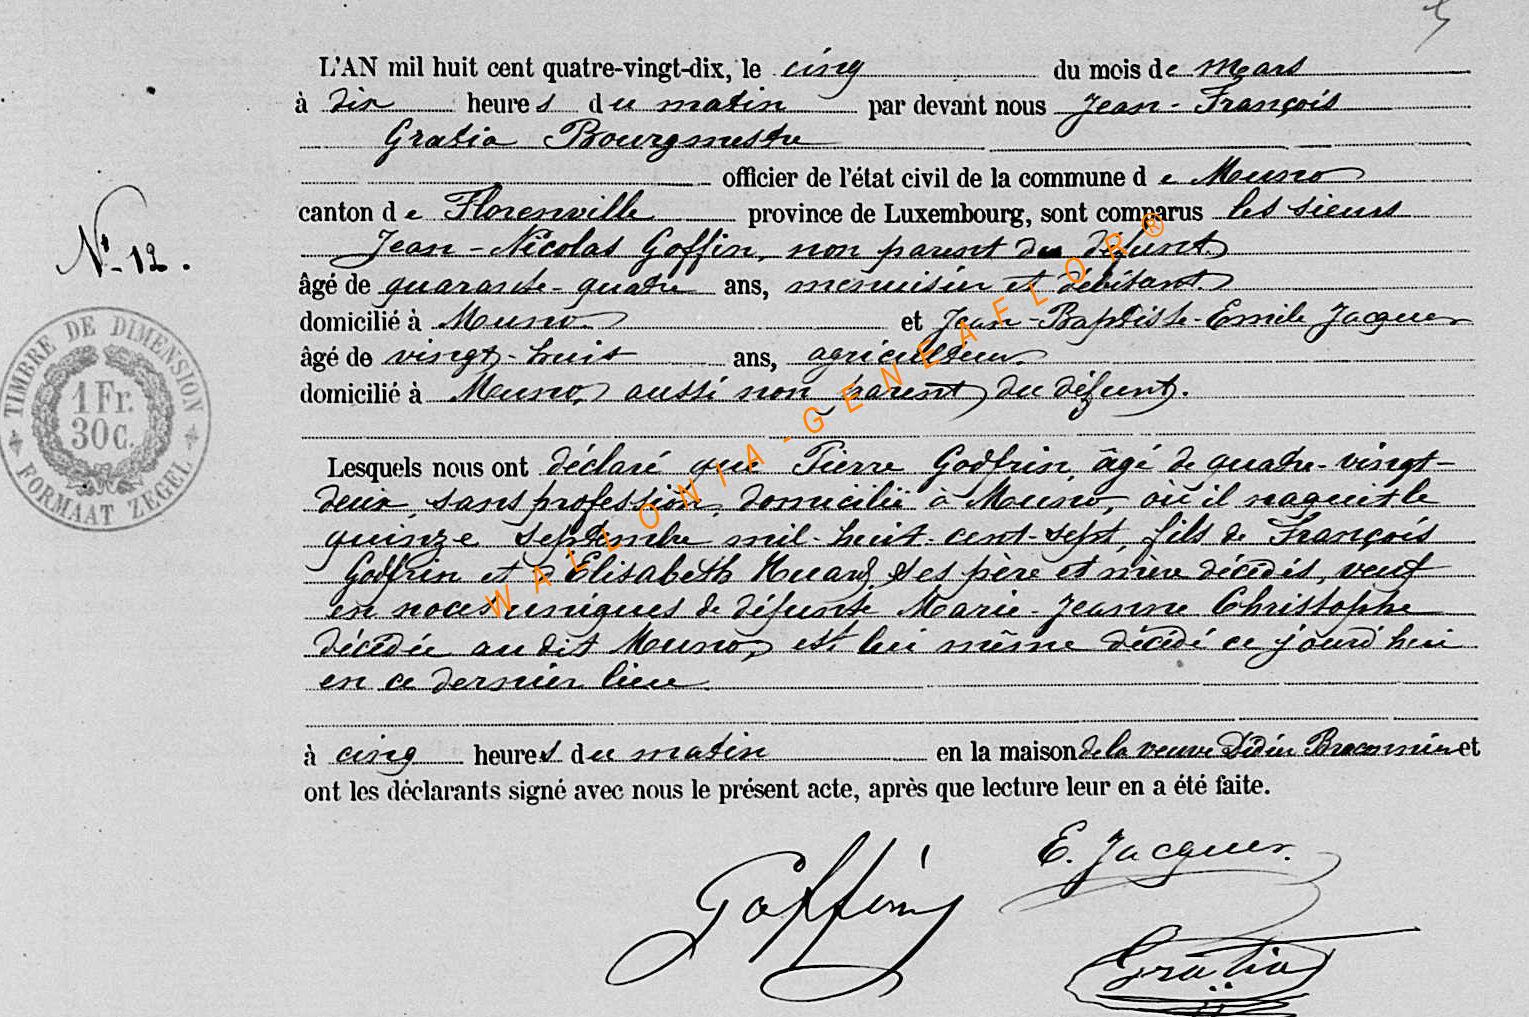 5
L'AN mil huit cent quatre-vingt-dix, le cinq du mois de Mars
à dix heures du matin par devant nous Jean-François
Gratia Bourgmestre
officier de l'état civil de la commune de Muno
canton de Florenville province de Luxembourg, sont comparus les sieurs
Jean-Nicolas Goffin, non parent du défunt
âgé de quarante-quatre ans, menuisier et débitant
domicilié à Muno et Jean-Baptiste-Emile Jacques
âgé de vingt-huit ans, agriculteur
domicilié à Muno, aussi non parent du défunt.
Lesquels nous ont déclaré que Pierre Godfrin, âgé de quatre-vingt-
deux, sans profession, domicilié à Muno, où il naquit le
quinze septembre mil-huit-cent-sept, fils de François
Godfrin et d'Elisabeth Huard, ses père et mère décédés, veuf
en noces uniques de défunte Marie-Jeanne Christophe
décédée au dit Muno, est lui même décédé ce jourd'hui
en ce dernier lieu
à cinq heures du matin en la maison de la veuve Didier Braconnier et
ont les déclarants signé avec nous le présent acte, après que lecture leur en a été faite.
N° 12.
TIMBRE DE DIMENSION
1 Fr.
30 C.
FORMAAT ZEGEL
WALLONIA-GENEAFLOR®
E. Jacques.
Goffin
Gratia